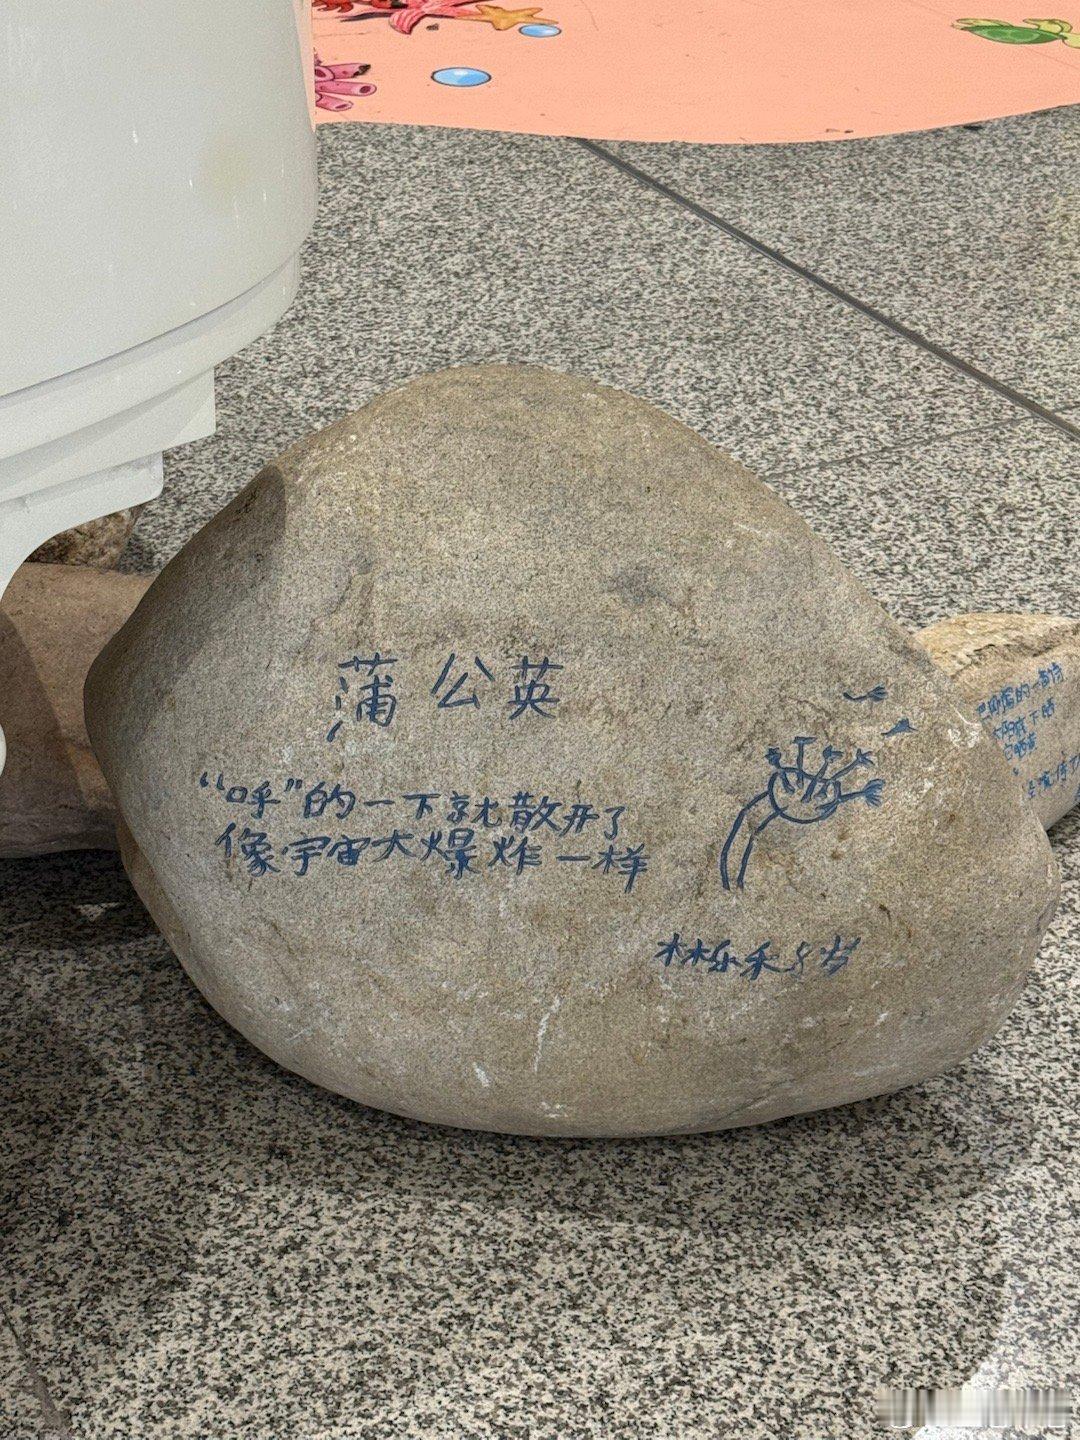 蒲公英
“呼”的一下就散开了
像宇宙大爆炸一样
林乐禾 5岁